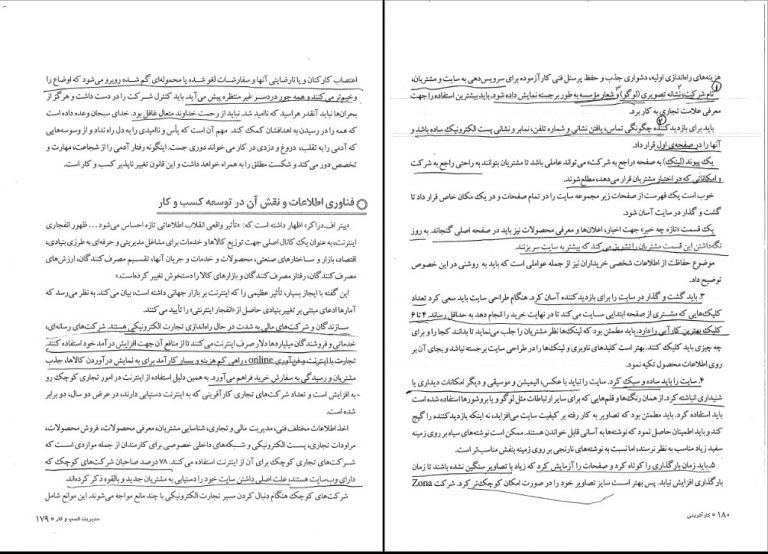 اعتصاب کارکنان و یا نارضایتی آنها و سفارشات لغو شده یا محموله‌ای گم شده روبرو می‌شود که اوضاع را
وخیم‌تر می‌کنند و همه جور دردسر غیر منتظره پیش می‌آید. باید کنترل شرکت را در دست داشت و هرگز از
بحران‌ها نباید آنقدر هراسید که ناامید شد. نباید از رحمت خداوند متعال غافل بود. خدای سبحان وعده داده است
که همه را در رسیدن به اهدافشان کمک کند. مهم آن است که یأس و ناامیدی را به دل راه نداد و از وسوسه‌هایی
که آدمی را به تقلب، دروغ و دزدی در کار می خواند دوری جست. اینگونه رفتار آدمی را از شجاعت، مهارت و
تخصص دور می‌کند و شکست مطلق را به همراه خواهد داشت و این قانون تغییر ناپذیر کسب و کار است.
فناوری اطلاعات و نقش آن در توسعه کسب و کار
«پیتر اف.دراکر» اظهار داشته است که: «تأثیر واقعی انقلاب اطلاعاتی تازه احساس می‌شود... ظهور انفجاری
اینترنت، به عنوان یک کانال اصلی جهت توزیع کالاها و خدمات برای مشاغل مدیریتی و حرفه‌ای به طرزی بنیادی،
اقتصاد، بازار و ساختارهای صنعتی، محصولات و خدمات و جریان آنها، تقسیم مصرف کنندگان، ارزش‌های
مصرف کنندگان، رفتار مصرف کنندگان و بازارهای کالا را دستخوش تغییر کرده‌است.»
این گفته با ایجاز بسیار، تأثیر عظیمی را که اینترنت بر بازار جهانی داشته است، بیان می‌کند. به نظر می‌رسد که
آمارها ادعای مبتنی بر تغییر بنیادی حاصل از «انفجار اینترنتی» را تأیید می‌کنند.
سازندگان و شرکت‌های مالی به شدت در حال راه‌اندازی تجارت الکترونیکی هستند. شرکت‌های رسانه‌ای،
خدماتی و فروشندگان میلیاردها دلار صرف اینترنت می‌کنند تا از منافع آن جهت افزایش درآمد خود استفاده کنند.
تجارت با اینترنت و فن‌آوری online، راهی کم هزینه و بسیار کارآمد برای به نمایش درآوردن کالاها، جذب
مشتریان و رسیدگی به سفارش خرید فراهم می‌آورد. به همین دلیل استفاده از اینترنت در امور تجاری کوچک رو
به افزایش است و تعداد شرکت‌های تجاری کارآفرینی که به اینترنت دستیابی دارند، در عرض دو سال، دو برابر
شده است.
اخذ اطلاعات مختلف فنی، مدیریت مالی و تجاری، شناسایی مشتریان، معرفی محصولات، فروش محصولات،
مراودات تجاری، پست الکترونیکی و شبکه‌های داخلی خصوصی برای کارمندان از جمله مواردی است که
شرکت‌های تجاری کوچک برای آن از اینترنت استفاده می کنند. ۷۸ درصد صاحبان شرکت‌های کوچک که
دارای وب‌سایت هستند، علت اصلی داشتن سایت خود را دستیابی به مشتریان جدید و بالقوه ذکر کرده‌اند.
شرکت‌های کوچک هنگام دنبال کردن مسیر تجارت الکترونیکی با چند مانع مواجه می‌شوند. این موانع شامل
مدیریت کسب و کار ۱۷۹
هزینه‌های راه‌اندازی اولیه، دشواری جذب و حفظ پرسنل فنی کارآزموده برای سرویس‌دهی به سایت و مشتریان،
نام شرکت، نشانه تصویری (لوگو) و شعار مؤسسه به طور برجسته نمایش داده شود. باید بیشترین استفاده را جهت
معرفی علامت تجاری به کار برد.
باید برای بازدید کننده چگونگی تماس، یافتن نشانی و شماره تلفن، نمابر و نشانی پست الکترونیک ساده باشد و
آنها را در صفحه‌ی اول قرار داد.
یک پیوند (لینک) به صفحه «راجع به شرکت» می‌تواند عاملی باشد تا مشتریان بتوانند به راحتی راجع به شرکت
و امکاناتی که در اختیار مشتریان قرار می‌دهد، مطلع شوند.
خوب است یک فهرست از صفحات زیر مجموعه سایت را در تمام صفحات و در یک مکان خاص قرار داد تا
گشت و گذار در سایت آسان شود.
یک قسمت «تازه چه خبر» جهت اخبار، اعلان‌ها و معرفی محصولات نیز باید در صفحه اصلی گنجاند. به روز
نگه‌داشتن این قسمت مشتریان را تشویق می‌کند که بیشتر به سایت سر بزنند.
موضوع حفاظت از اطلاعات شخصی خریداران نیز از جمله عواملی است که باید به روشنی در این خصوص
توضیح داد.
۳. باید گشت و گذار در سایت را برای بازدید کننده آسان کرد. هنگام طراحی سایت باید سعی کرد تعداد
کلیک‌هایی که مشتری از صفحه ابتدایی سایت می‌کند تا در نهایت خرید را انجام دهد به حداقل رساند. ۴ تا ۶
کلیک بهترین کارآیی را دارد. باید مطمئن بود که لینک‌ها نظر مشتریان را جلب می‌نماید تا بدانند کجا را و برای
چه چیزی باید کلیک کنند. بهتر است کلیدهای ناوبری و لینک‌ها را در طراحی سایت برجسته نباشد و بجای آن بر
روی اطلاعات محصول تکیه نمود.
۴. سایت را باید ساده و سبک کرد. سایت را نباید با عکس، انیمیشن و موسیقی و دیگر امکانات دیداری یا
شنیداری انباشته کرد. از همان رنگ‌ها و قلم‌هایی که برای سایر ارتباطات مثل لوگو یا بروشورها استفاده شده است
باید استفاده کرد. باید مطمئن بود که تصاویر به کار رفته بر کیفیت سایت می‌افزاید، نه اینکه بازدیدکننده را گیج
کند و باید اطمینان حاصل نمود که نوشته‌ها به آسانی قابل خواندن هستند. ممکن است نوشته‌های سیاه بر روی زمینه
سفید زیاد مناسب به نظر نرسند، اما نسبت به نوشته‌های نارنجی بر روی زمینه بنفش مناسب‌تر است.
۵. باید زمان بارگذاری را کوتاه کرد و صفحات را آزمایش کرد که زیاد با تصاویر سنگین نشده باشند تا زمان
بارگذاری افزایش نیابد. پس بهتر است سایز تصاویر خود را در صورت امکان کوچک‌تر کرد. شرکت Zona
۱۸۰ کارآفرینی